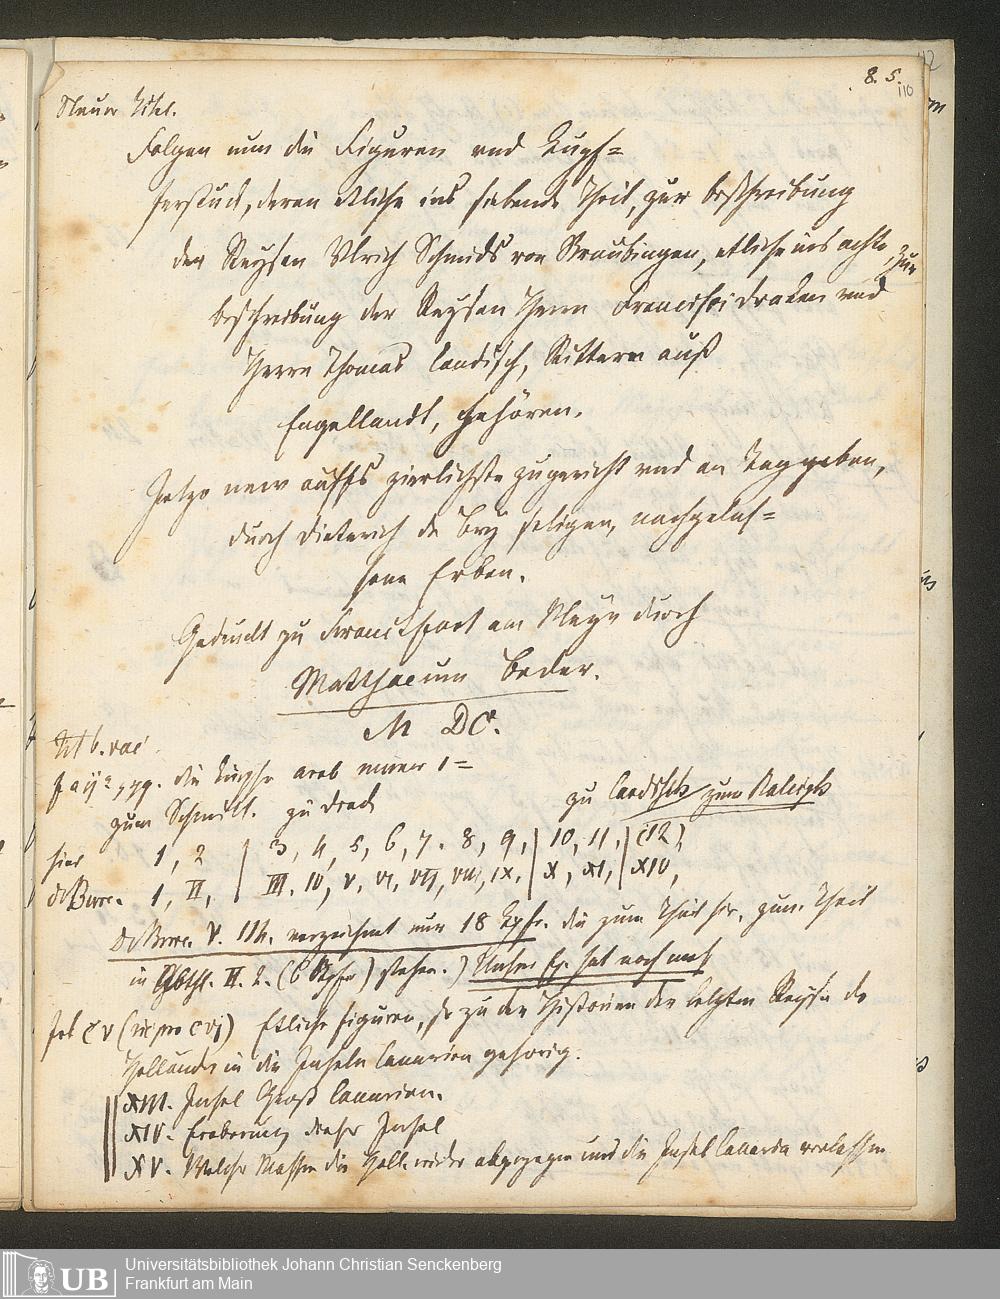 8. 5.
110
Neuer Titel.
Folgen nun die Figuren vnd Kupf=
ferstuck, deren etliche ins siebende Theil, zur beschreibung
der Reysen Vlrich Schmids von Straubingen, etliche ins achte, zur
beschreibung der Reysen Herrn Francisci Draken vnd
Herrn Thomas Candisch, Rittern auß
Engellandt, gehören.
Jetzo new auffs zierlichste zugericht vnd an Tag geben,
durch Dieterich de Bry seligen, nachgelas=
sene Erben.
Gedruckt zu Franckfurt am Mayn durch
Matthaeum Becker.
M DC.
Tit b. vac.
die Kupfer arab numer 1=
zum Schmidt. zu Drack
zu Candisch zum Raleigh
hier 1, 2 3, 4, 5, 6, 7, 8, 9, 10, 11, (12)
De Bure. I, II, III, IV, V, VI, VII, VIII, IX, X, XI, XIV,
De Bure. verzeichnet nur 18 Kpfr. die zum Theil hier, zum Theil
in Abthl. II. 2. (6 Kpfr) stehen.) Unser Ex. hat noch
Etliche figuren, so zu den Historien der letzten Reyse der
Holländer in die Inseln Canarien gehörig.
XIII. Insel Groß Canarien.
XIV. Eroberung dieser Insel
XV. Welcher Massen die Holl. wieder abgezogen und die Insel Canaria verlassen
Universitätsbibliothek Johann Christian Senckenberg
UB
Frankfurt am Main